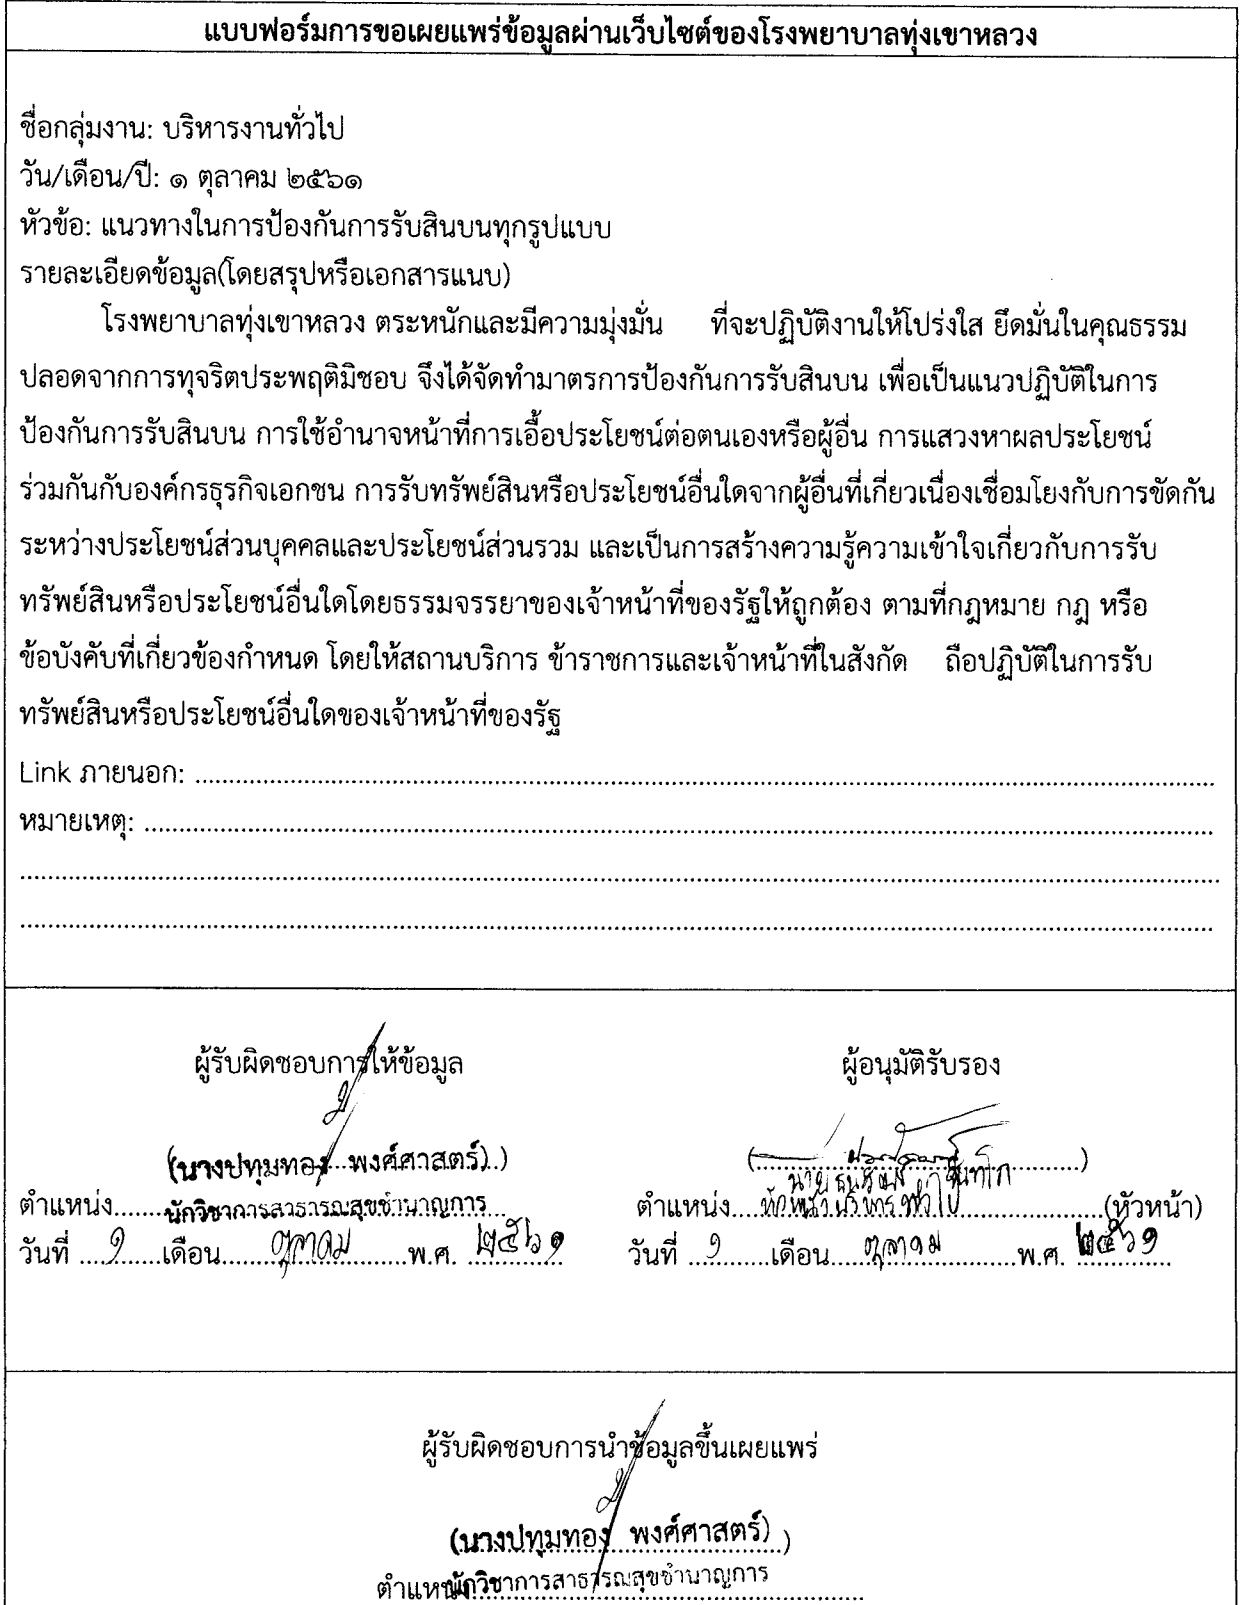 แบบฟอร์มการขอเผยแพร่ข้อมูลผ่านเว็บไซต์ของโรงพยาบาลทุ่งเขาหลวง
ชื่อกลุ่มงาน: บริหารงานทั่วไป
วัน/เดือน/ปี: ๑ ตุลาคม ๒๕๖๑
หัวข้อ: แนวทางในการป้องกันการรับสินบนทุกรูปแบบ
รายละเอียดข้อมูล(โดยสรุปหรือเอกสารแนบ)
โรงพยาบาลทุ่งเขาหลวง ตระหนักและมีความมุ่งมั่น ที่จะปฏิบัติงานให้โปร่งใส ยึดมั่นในคุณธรรม
ปลอดจากการทุจริตประพฤติมิชอบ จึงได้จัดทำมาตรการป้องกันการรับสินบน เพื่อเป็นแนวปฏิบัติในการ
ป้องกันการรับสินบน การใช้อำนาจหน้าที่การเอื้อประโยชน์ต่อตนเองหรือผู้อื่น การแสวงหาผลประโยชน์
ร่วมกันกับองค์กรธุรกิจเอกชน การรับทรัพย์สินหรือประโยชน์อื่นใดจากผู้อื่นที่เกี่ยวเนื่องเชื่อมโยงกับการขัดกัน
ระหว่างประโยชน์ส่วนบุคคลและประโยชน์ส่วนรวม และเป็นการสร้างความรู้ความเข้าใจเกี่ยวกับการรับ
ทรัพย์สินหรือประโยชน์อื่นใดโดยธรรมจรรยาของเจ้าหน้าที่ของรัฐให้ถูกต้อง ตามที่กฎหมาย กฎ หรือ
ข้อบังคับที่เกี่ยวข้องกำหนด โดยให้สถานบริการ ข้าราชการและเจ้าหน้าที่ในสังกัด ถือปฏิบัติในการรับ
ทรัพย์สินหรือประโยชน์อื่นใดของเจ้าหน้าที่ของรัฐ
Link ภายนอก: ..........
หมายเหตุ: ..........
ผู้รับผิดชอบการให้ข้อมูล ผู้อนุมัติรับรอง
(นางปทุมทอง พงศ์ศาสตร์)
ตำแหน่ง นักวิชาการสาธารณสุขชำนาญการ ตำแหน่ง หัวหน้าบริหารทั่วไป (หัวหน้า)
วันที่ ๑ เดือน ตุลาคม พ.ศ. ๒๕๖๑ วันที่ ๑ เดือน ตุลาคม พ.ศ. ๒๕๖๑
ผู้รับผิดชอบการนำข้อมูลขึ้นเผยแพร่
(นางปทุมทอง พงศ์ศาสตร์)
ตำแหน่ง นักวิชาการสาธารณสุขชำนาญการ